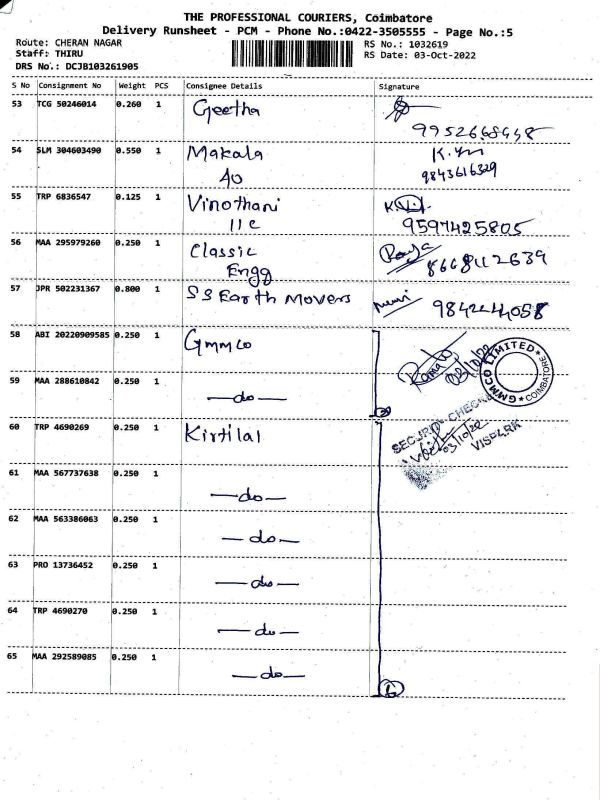 THE PROFESSIONAL COURIERS, Coimbatore
Delivery Runsheet - PCM - Phone No.:0422-3505555 - Page No.:5
Route: CHERAN NAGAR
RS No.: 1032619
Staff: THIRU
RS Date: 03-Oct-2022
DRS No.: DCJB103261905
S No Consignment No Weight PCS Consignee Details Signature
53 TCG 50246014 0.260 1 Geetha
9952668448
54 SLM 304603490 0.550 1 Makala
40
9843616329
55 TRP 6836547 0.125 1 Vinothani
11c 9597425805
56 MAA 295979260 0.250 1 Classic
Engg 8668112639
57 JPR 502231367 0.800 1 SS Earth Movers 9842244058
58 ABI 20220909585 0.250 1 Gmmco
03/10/22
GMMCO LIMITED
COIMBATORE
59 MAA 288610842 0.250 1 —do—
2
60 TRP 4690269 0.250 1 Kirtilal
SECURITY CHECKED
03/10/22
61 MAA 567737638 0.250 1 —do—
62 MAA 563386063 0.250 1 —do—
63 PRO 13736452 0.250 1 —do—
64 TRP 4690270 0.250 1 —do—
65 MAA 292589085 0.250 1 —do—
6